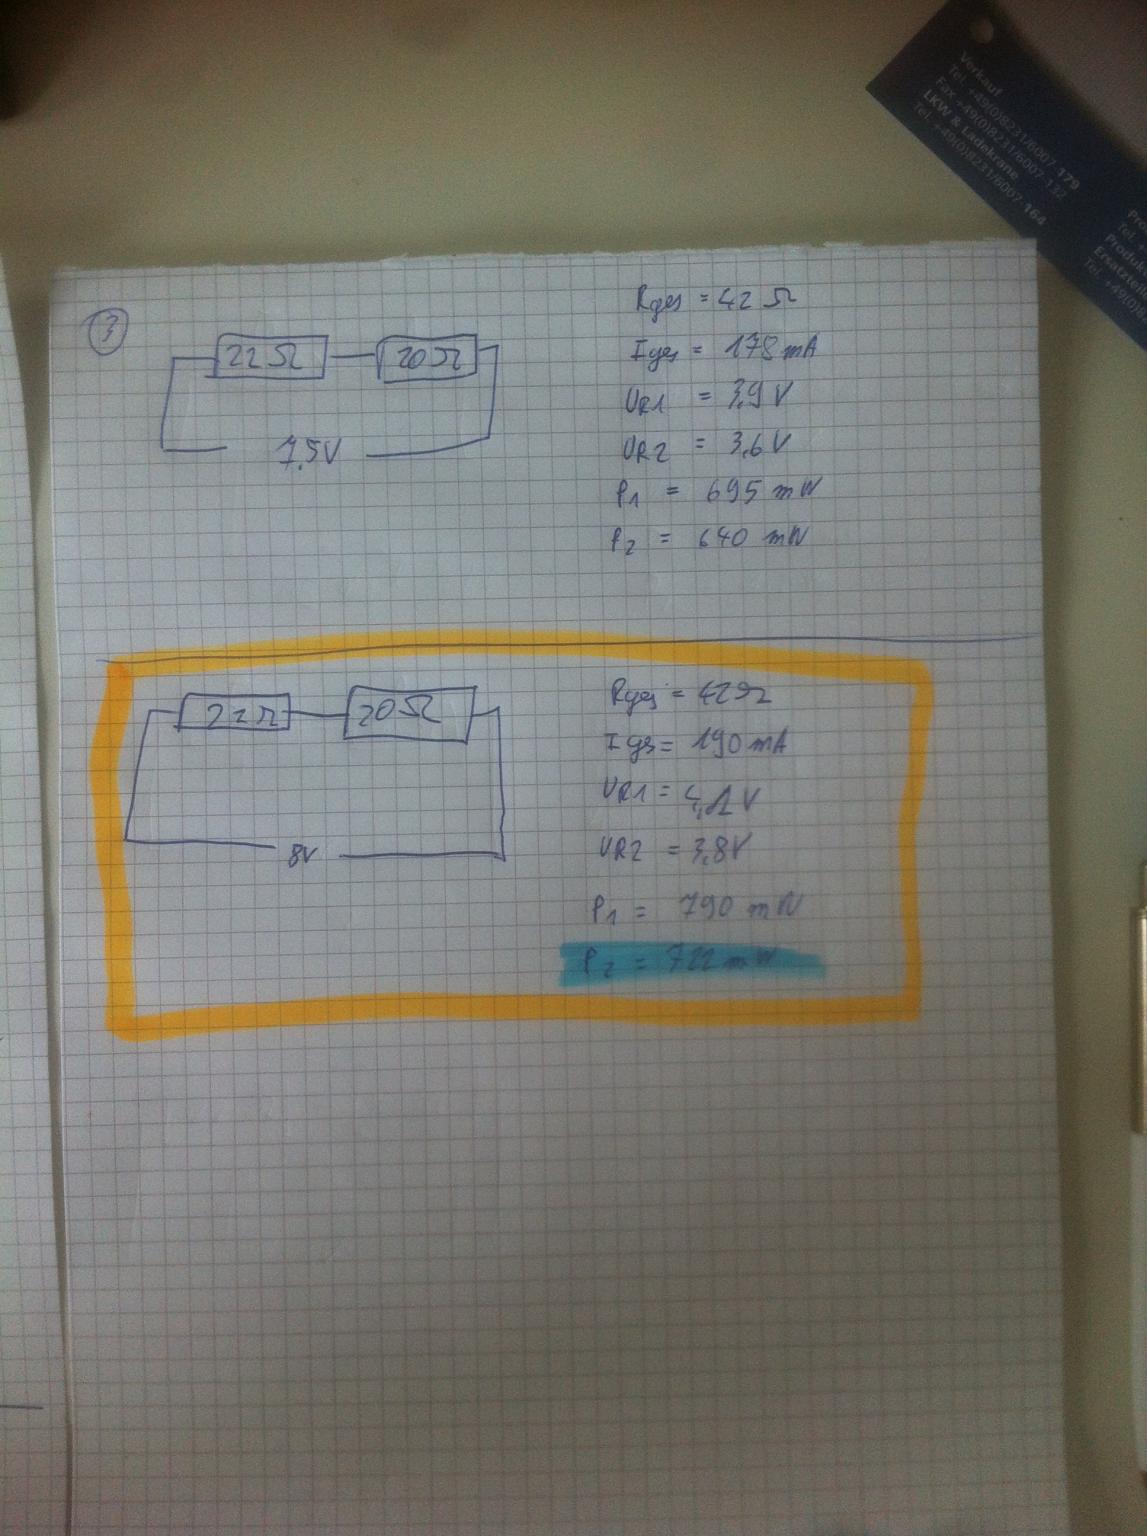 Verkauf
Tel. +49(0)8231/6007-179
Fax +49(0)8231/6007-132
LKW & Ladekrane
Tel. +49(0)8231/6007-164
Tel.
Tel. +49(0)
3
22Ω 20Ω
7,5V
Rges = 42 Ω
Iges = 178 mA
UR1 = 3,9 V
UR2 = 3,6 V
P1 = 695 mW
P2 = 640 mW
22Ω 20Ω
8V
Rges = 42Ω
Iges = 190 mA
UR1 = 4,1 V
UR2 = 3,8V
P1 = 790 mW
P2 = 722 mW